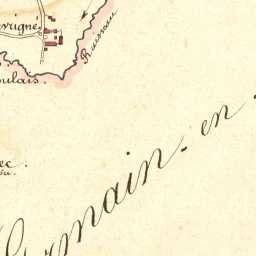 evrigné
Ruisseau
oulais.
ec.
ermain. en